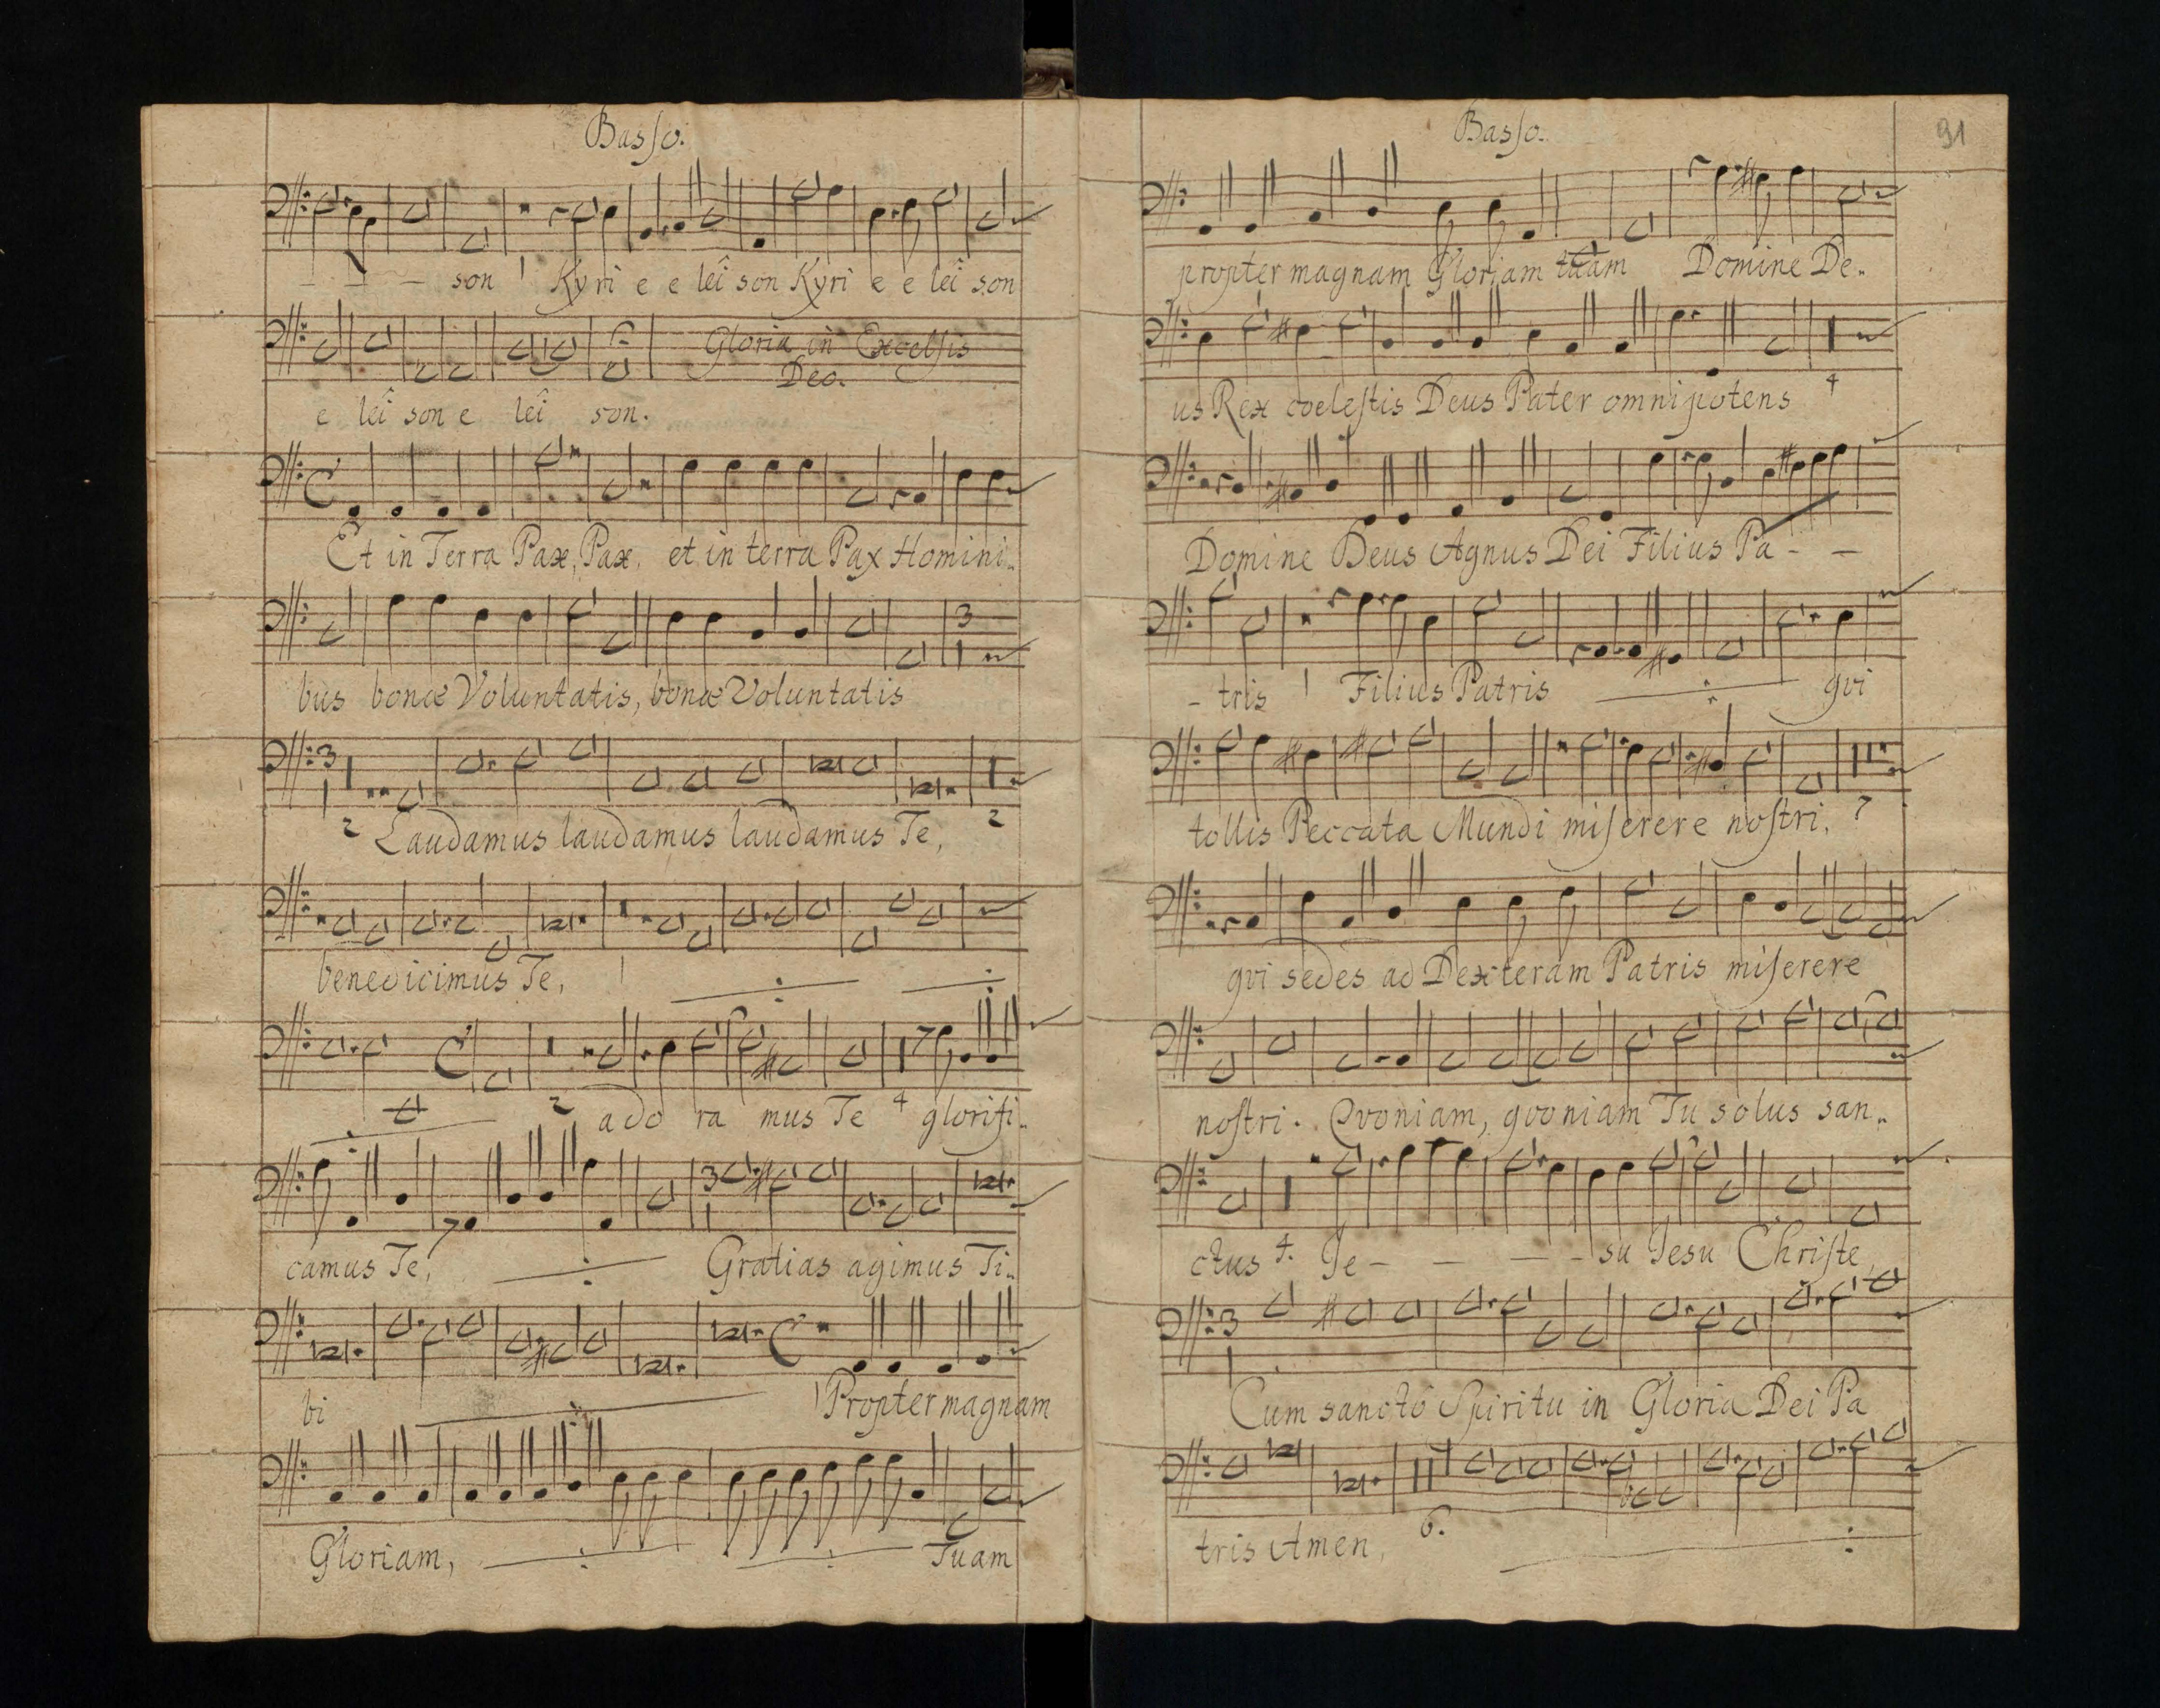 Basso.
- - - son 1 Kyri e e leî son Kyri e e leî son
Gloria in Excelsis
Deo.
e leî son e leî son.
Et in Terra Pax, Pax, et in terra Pax Homini..
3
bus bonæ Voluntatis, bonæ Voluntatis
3
2 Laudamus laudamus laudamus Te, 2
benedicimus Te, 1
2 ado ra mus Te 4 glorifi..
3
camus Te, Gratias agimus Ti..
bi 1 Propter magnam
Gloriam, Tuam
Basso.
91
propter magnam Gloriam tuam Domine De..
us Rex coelestis Deus Pater omnipotens 4
Domine Deus Agnus Dei Filius Pa - -
- tris 1 Filius Patris qvi
tollis Peccata Mundi miserere nostri, 7
qvi sedes ad Dexteram Patris miserere
nostri. Qvoniam, qvoniam Tu solus san..
ctus 4. Je - - - - su Jesu Christe,
3
Cum sancto Spiritu in Gloria Dei Pa
tris Amen, 6.